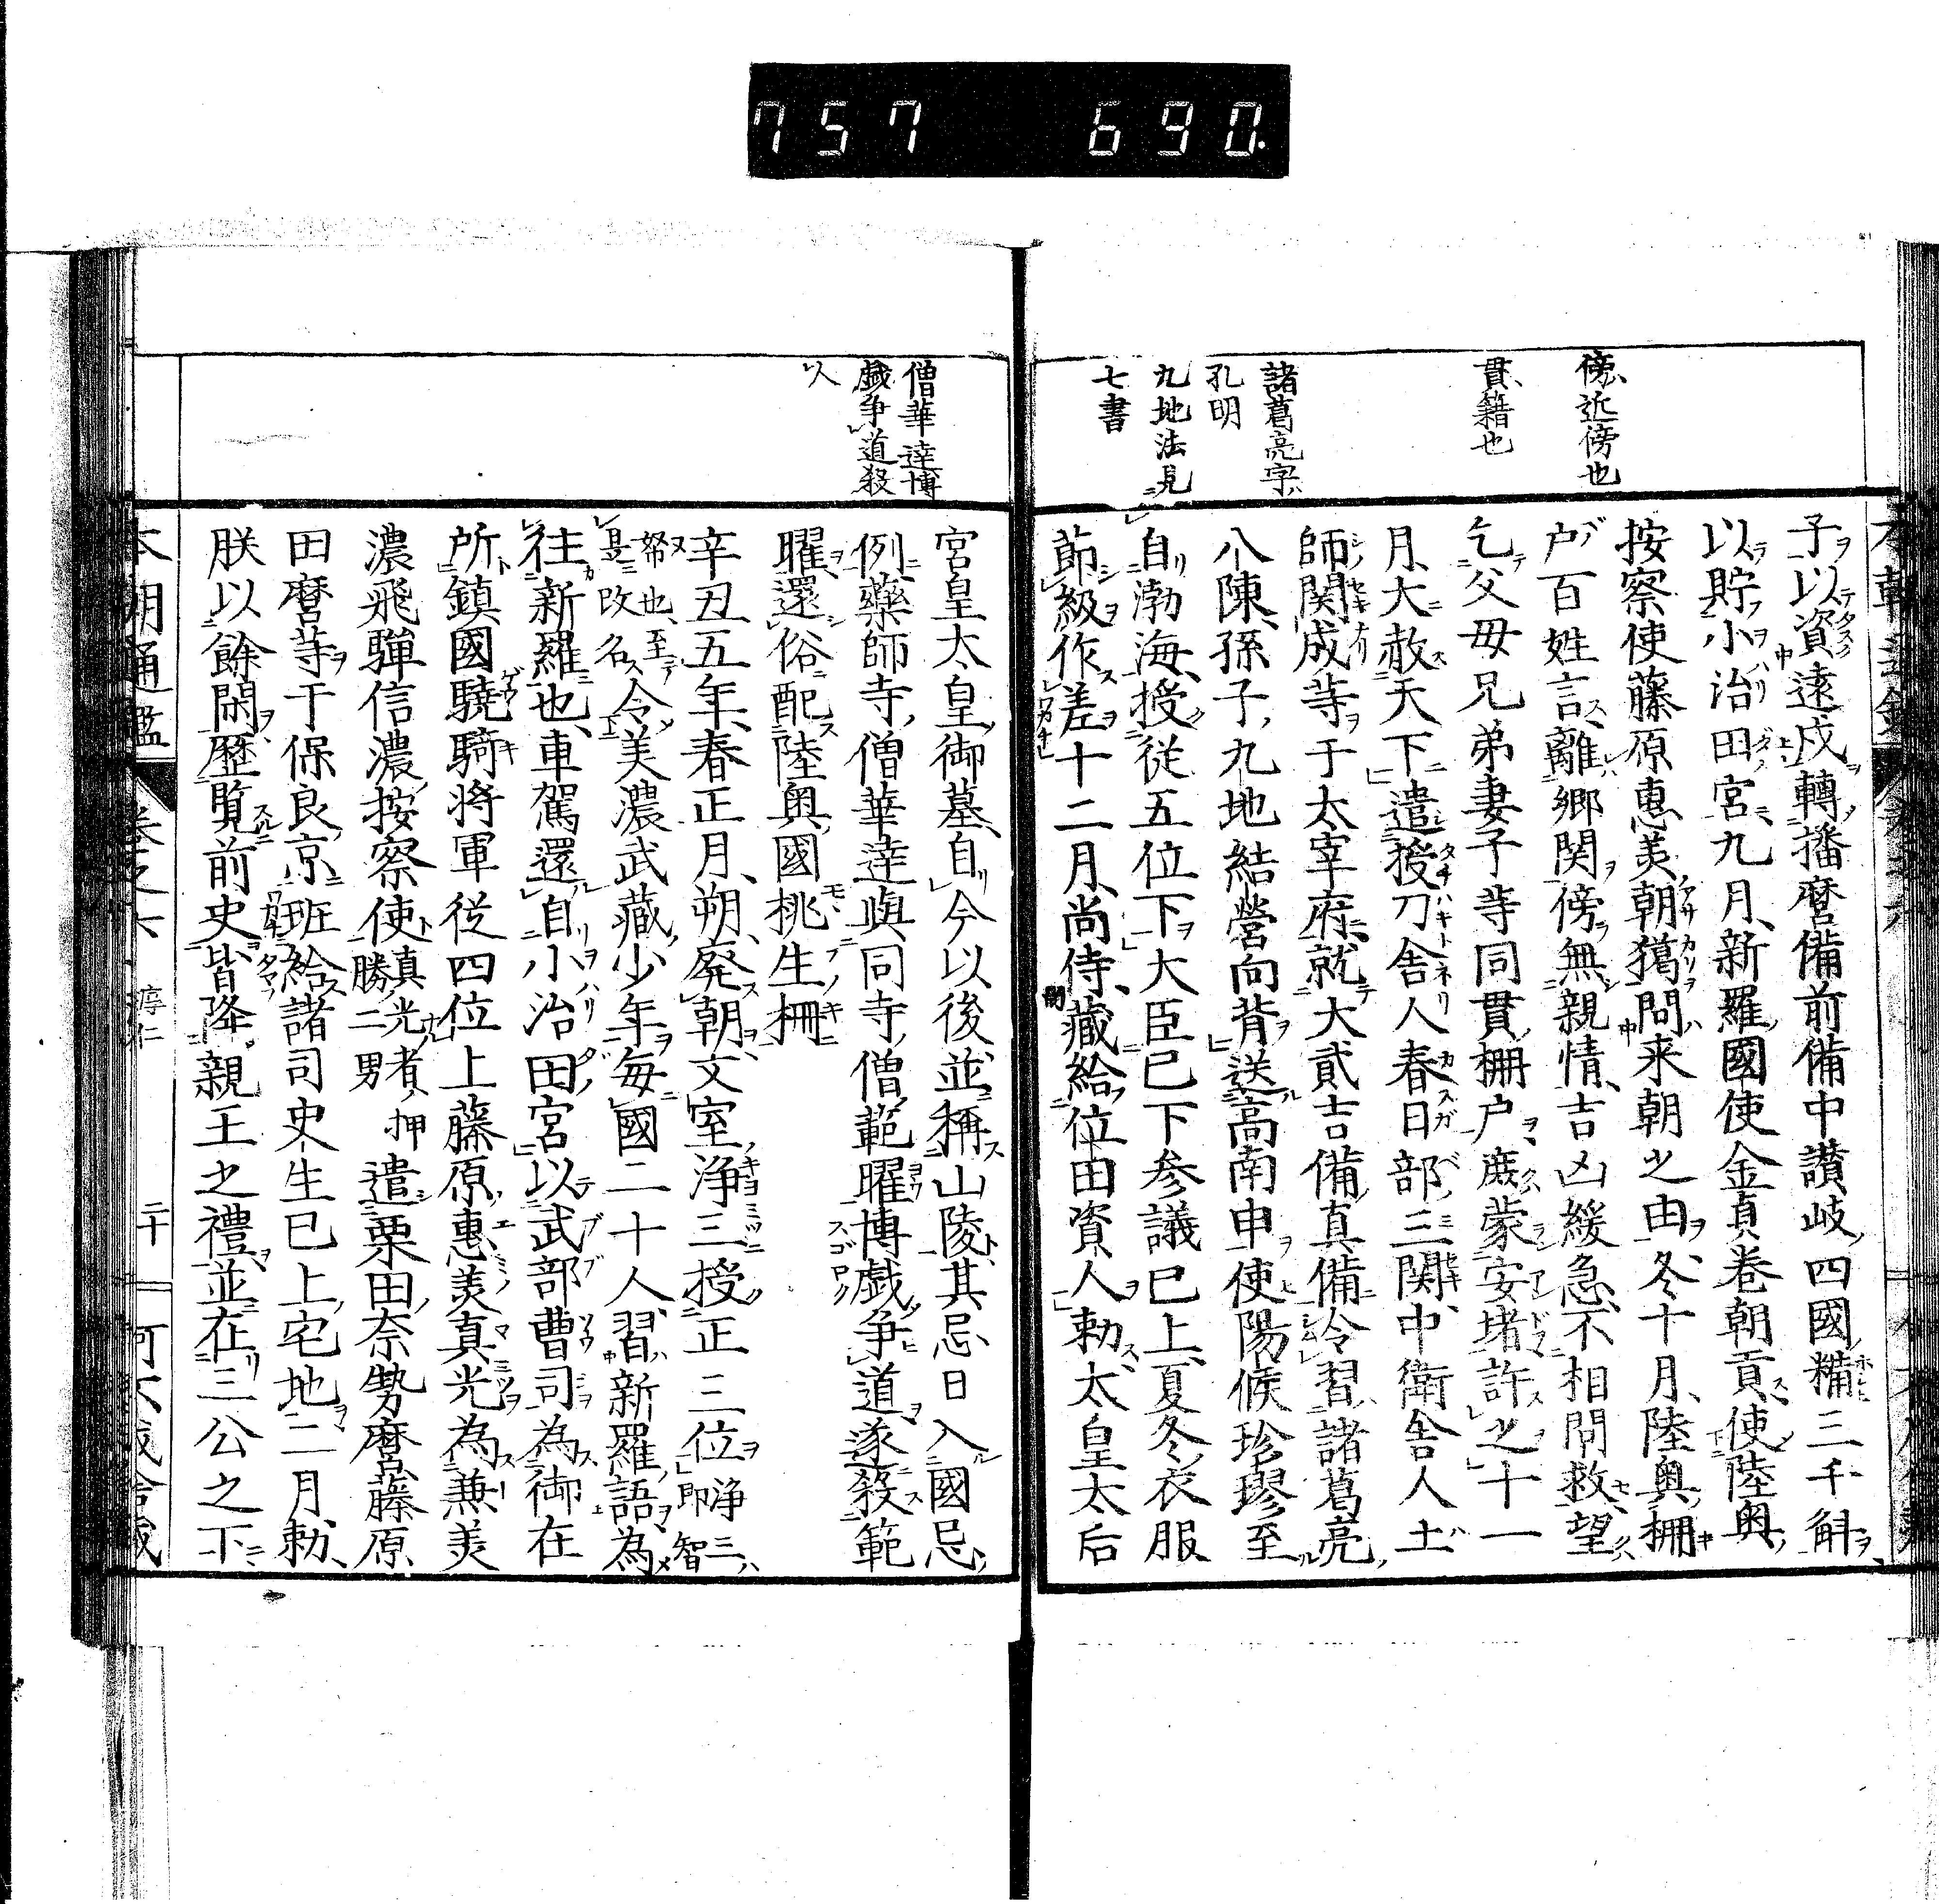 757 690.
傍、近傍也
貫、籍也
諸葛亮字、
孔明
九地法見
七書
子以資遠戍轉播磨備前備中讃岐四國糒三千斛
以貯小治田宮九月、新羅國使金貞巻朝貢使陸奥
按察使藤原惠美朝獦問来朝之由、冬十月、陸奥柵
戸百姓言、離郷関傍無親情、吉凶緩急、不相問救、望
乞父母兄弟妻子等同貫柵戸庶蒙安堵許之十一
月、大赦天下遣授刀舎人春日部三関、中衛舎人土
師関成等于太宰府、就大貳吉備真備令習諸葛亮
八陳、孫子、九地結營向背送高南申使陽候珍璆至
自渤海、授従五位下大臣已下参議已上、夏冬衣服
節級作差十二月、尚侍、藏給位田資人勅太皇太后
宮皇太皇御墓、自今以後並稱山陵、其忌日入國忌
例、藥師寺僧華達與同寺僧範曜博戯争道遂殺範
曜、還俗配陸奥國桃生柵
辛丑五年、春正月朔、廃朝、文室浄三授正三位浄三即智
努也、至是改名令美濃武藏少年毎國二十人習新羅語為
往新羅也、車駕還自小治田宮以武部曹司為御在
所鎮國驍騎将軍従四位上藤原惠美真光為兼美
濃飛騨信濃按察使真光者押勝二男遣粟田奈勢麿藤原
田麿等于保良京班給諸司史生已上宅地二月、勅、
朕以餘閑歴覧前史皆降親王之禮並在三公之下
僧華達博
戯争道殺
人
本朝通鑑 卷之六 淳仁 二十